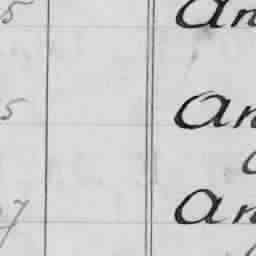 5 An
5 An
7 An